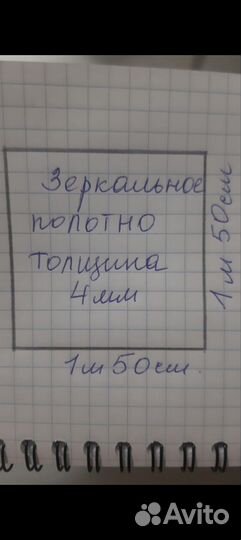 Зеркальное
полотно
толщина
4мм
1м 50см
1м 50см.
Avito